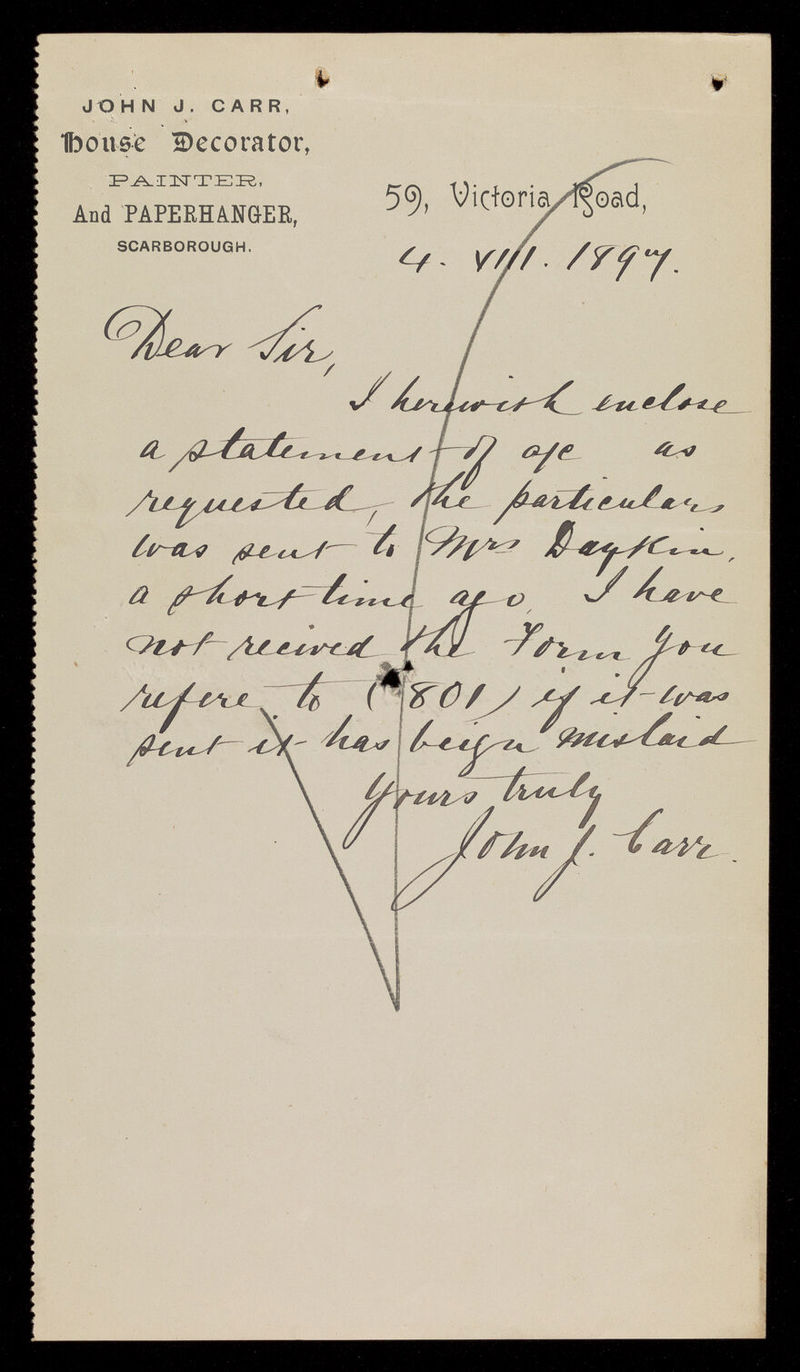 JOHN J. CARR,
House Decorator,
PAINTER,
And PAPERHANGER,
SCARBOROUGH.
59, Victoria Road,
4. VIII. 1897.
Dear Sir,
I herewith enclose
a statement of a/c as
requested, the particulars
was sent to Mrs Daykin,
a short time ago, I have
not recived the Form you
refere to (1801) if it was
sent it has beign mislaid
Yours truly
John J. Carr.